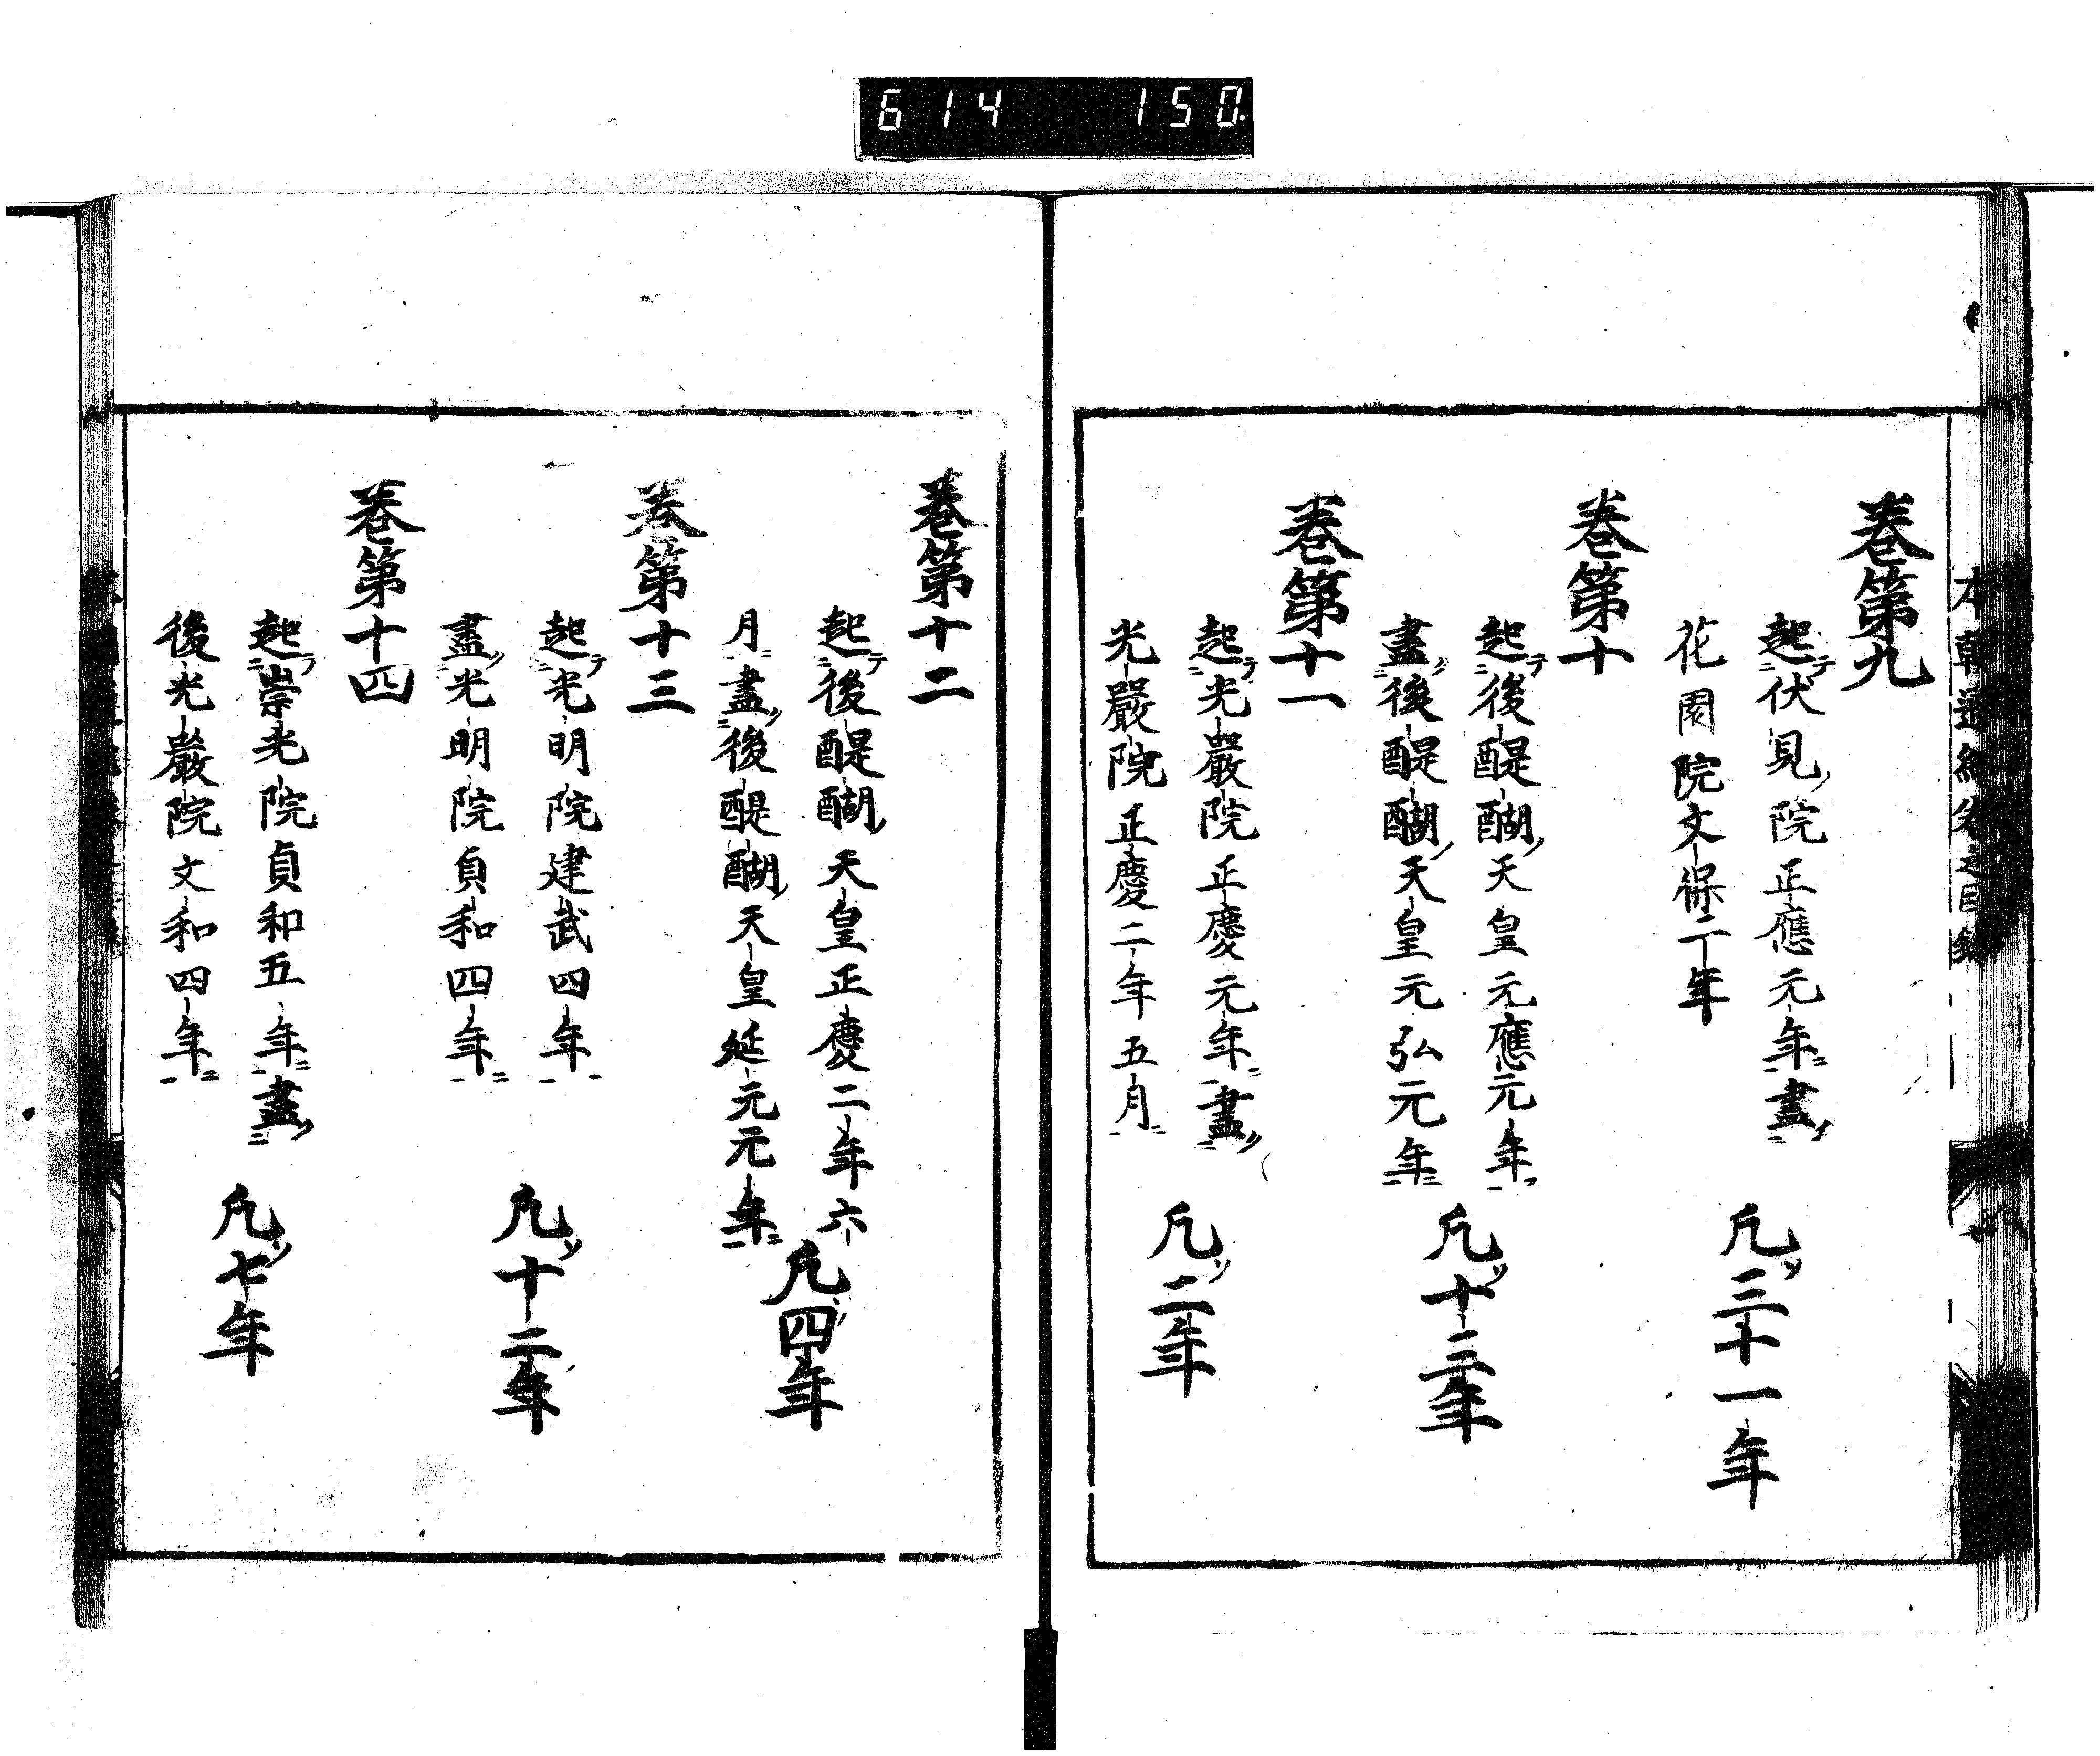 614 150.
本朝通紀卷之目錄
卷第九
起テ伏見ノ院正應元年盡
花園院文保二年
凡ソ三十一年
卷第十
起テ後醍醐ノ天皇元應元年
盡後醍醐ノ天皇元弘元年
凡ソ十三年
卷第十一
起テ光嚴院正慶元年盡
光嚴院正慶二年五月
凡ソ二年
卷第十二
起テ後醍醐ノ天皇正慶二年六
月盡後醍醐ノ天皇延元元年
凡ソ四年
卷第十三
起テ光明院建武四年
盡光明院貞和四年
凡ソ十二年
卷第十四
起テ崇光院貞和五年盡
後光嚴院文和四年
凡ソ七年